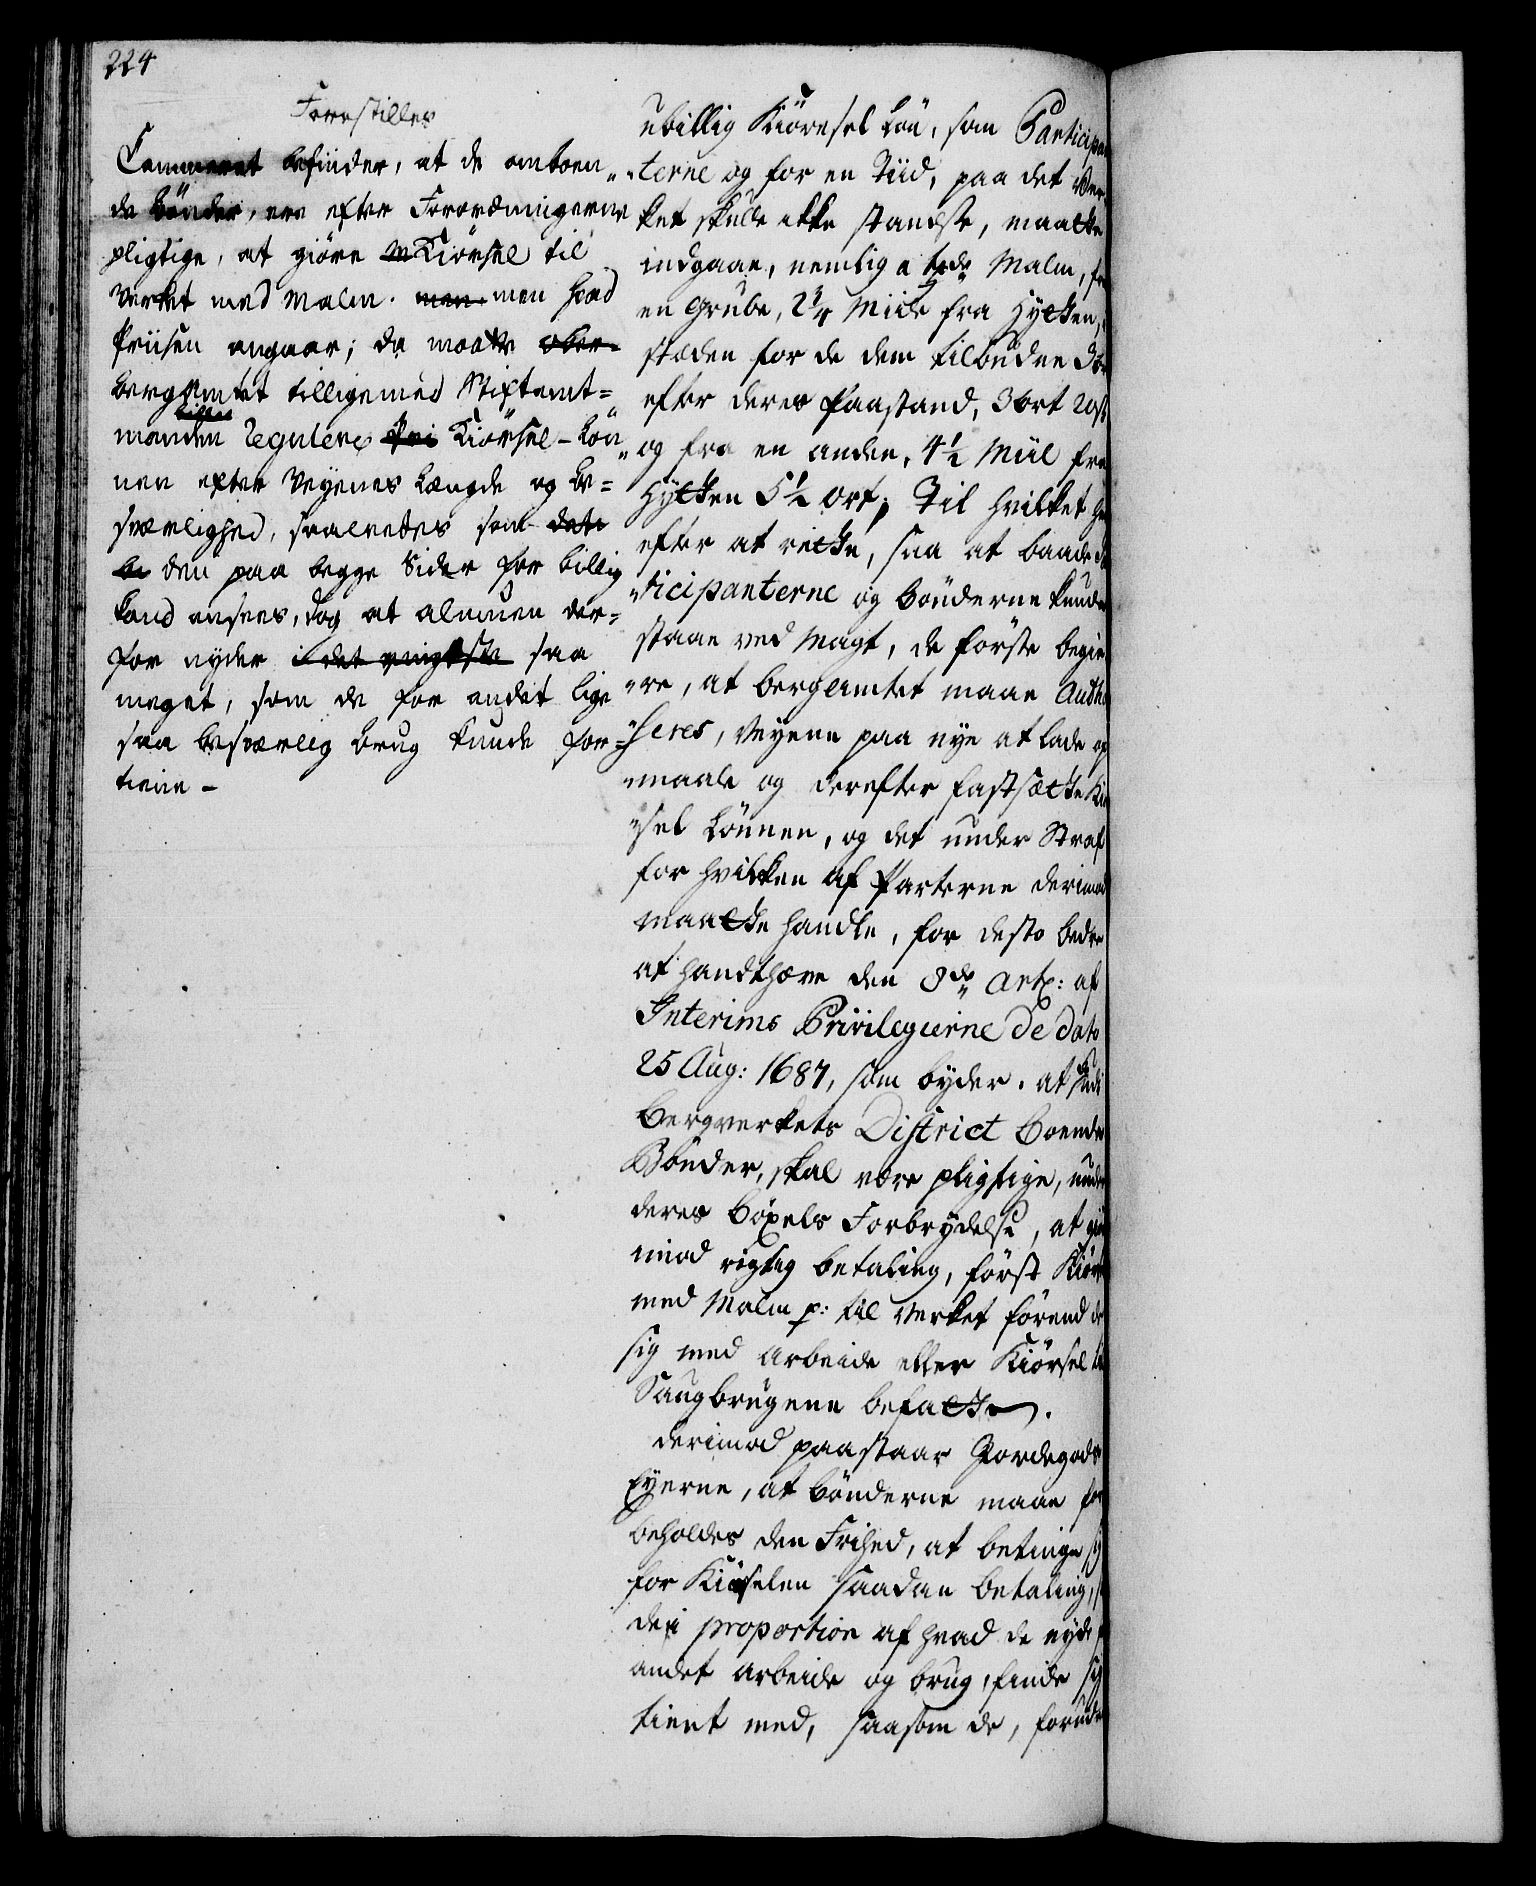 224
Forestilles
Cammeret befinder, at de omboen„
de bönder, ere efter Forordningerne
pligtige, at giöre Kiörsel til
Verket med Malm. men men hvad
Priisen angaar; da maatte ober-
bergamtet tilligemed Stiftamt=
manden regulere Kiörsel-Lön„
nen efter Veyenes Længde og be=
sværlighed, saaledes som det
be den paa begge Sider for billig
kand ansees, dog at almuen der=
for nyder i det ringeste saa
meget, som de for andet lige
saa besværlig brug kunde for=
tiene -
ubillig Kiörsel Lön, som Participan
„terne og for en Tiid, paa det Ver
ket skulle ikke standse, maatte
indgaae, nemlig a tde Malm, fra
en Grube, 2¾ Miile fra Hytten,
stæden for de dem tilbudne 3
efter deres Paastand, 3 ort 20 s
og fra en anden, 4½ Miil fra
Hytten 5½ ort; Til hvilket her
efter at rette, saa at baade Par
„ticipanterne og bönderne kunde
staae ved Magt, de förste begie
„re, at bergamtet maae Autho
„seres, Veyene paa nye at lade op
„maale og derefter fastsætte Kiör
„sel Lönnen, og det under Straf
for hvilken af Parterne derimod
maatte handle, for desto bedre
at handthæve den 8de Art: af
Interims Privilegierne de dato
25 Aug: 1687, som byder. at de i
bergverkets District boende
Bönder, skal være pligtige, under
deres Böxels Forbrydelse, at giöre
imod rigtig betaling, först Kiörs
med Malm p: til Verket förend de
sig med Arbeide eller Kiörsel til
Saugbrugene befatte.
derimod paastaar Jordegods
Eyerne, at bönderne maae for
beholdes den Frihed, at betinge sig
for Kiörselen saadan betaling,
de i proportion af hvad de nyde
andet arbeide og brug, finde sig
tient med, saasom de, foruden